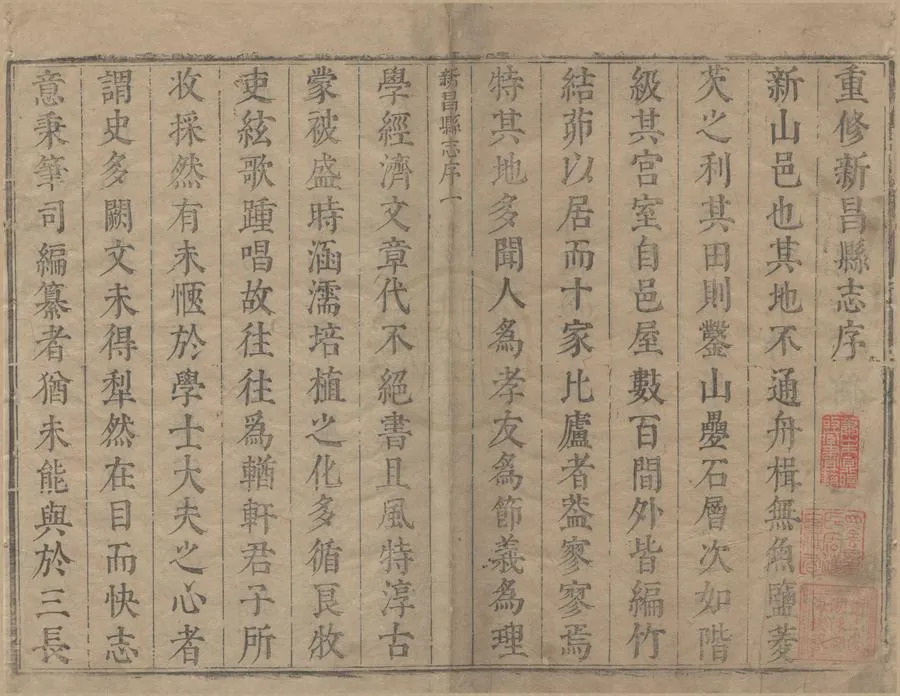 重修新昌縣志序
新山邑也其地不通舟楫無魚鹽菱
芡之利其田則鑿山疊石層次如階
級其宮室自邑屋數百間外皆編竹
結茆以居而十家比廬者葢寥寥焉
特其地多聞人為孝友為節義為理
新昌縣志序 一
學經濟文章代不絕書且風特淳古
蒙被盛時涵濡培植之化多循良牧
吏絃歌踵唱故往往為輶軒君子所
收採然有未愜於學士大夫之心者
謂史多闕文未得犁然在目而快志
意秉筆司編纂者猶未能與於三長